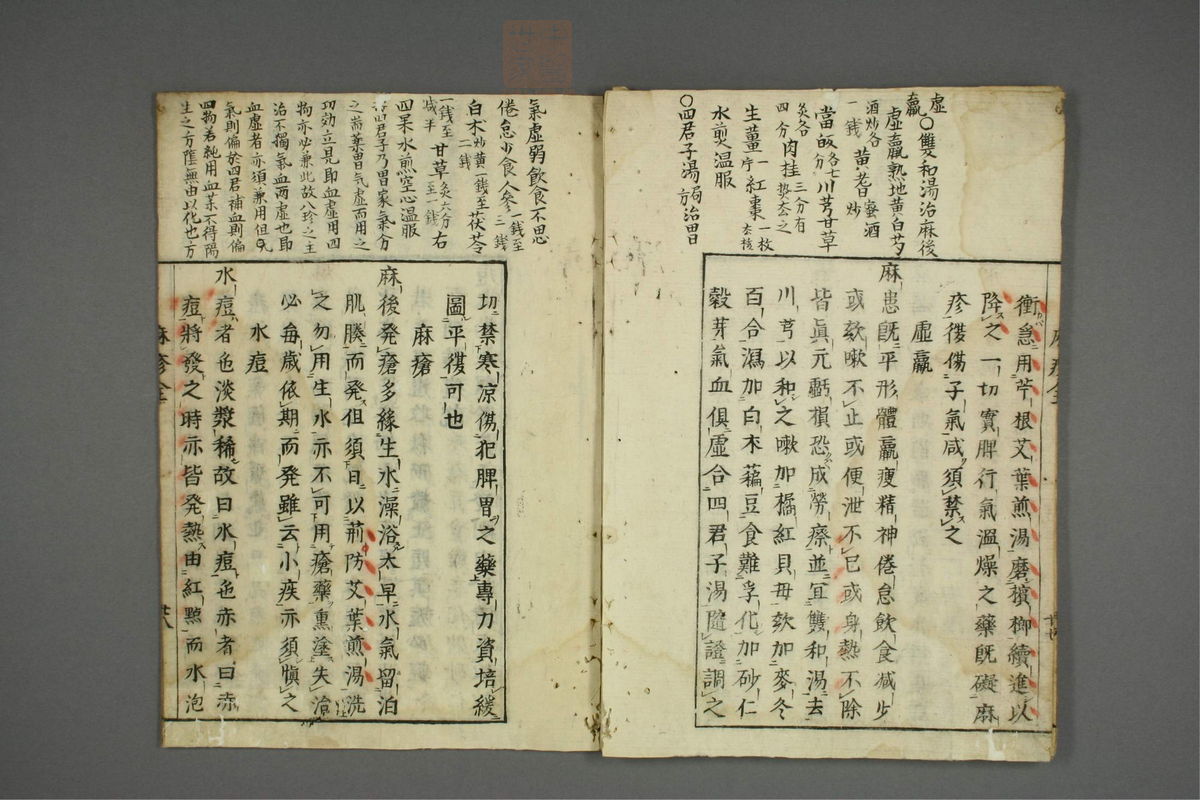 虚羸
○雙和湯治麻後
虚羸熟地黄白芍
酒炒各一錢 黄耆蜜酒炒
當皈各七分川芎甘草
炙各四分肉桂三分有熱去之
生薑一片紅棗一枚去核
水煎温服
○四君子湯局方治胃
衝急用苧根艾葉煎湯磨檳榔續進以
降之一切實脾行氣溫燥之藥既礙麻
疹復傷子氣咸須禁之
虚羸
麻患既平形體羸痩精神倦怠飲食减少
或欬嗽不止或便泄不已或身熱不除
皆眞元虧損恐成勞瘵並宜雙和湯去
川芎以和之嗽加橘紅貝母欬加麥冬
百合瀉加白朮藊豆食難孚化加砂仁
穀芽氣血俱虚合四君子湯隨證調之
氣虚弱飲食不思
倦怠少食人參一錢至二錢
白朮炒黄一錢至二錢茯苓
一錢至减半 甘草炙六分至一錢右
四果水煎空心温服
四君子乃胃家氣分
之藥胃氣虚而用之
功効立見即血虚用四
物亦必兼此故八珍之主
治不獨氣血两虚也即
血虚者亦須兼用但
氣則偏於四君補血則偏
四物若純用血薬不得陽
生之方陰無由以化也方
切禁寒凉傷犯脾胃之藥專力資培緩
圖平復可也
麻瘡
麻後発瘡多緣生水澡浴太早水氣留泊
肌腠而発但須日以荊防艾葉煎湯洗
之勿用生水亦不可用瘡藥熏塗失治
必每歳依期而発雖云小疾亦須愼之
水痘
水痘者色淡漿稀故曰水痘色赤者曰赤
痘將發之時亦皆発熱由紅點而水泡